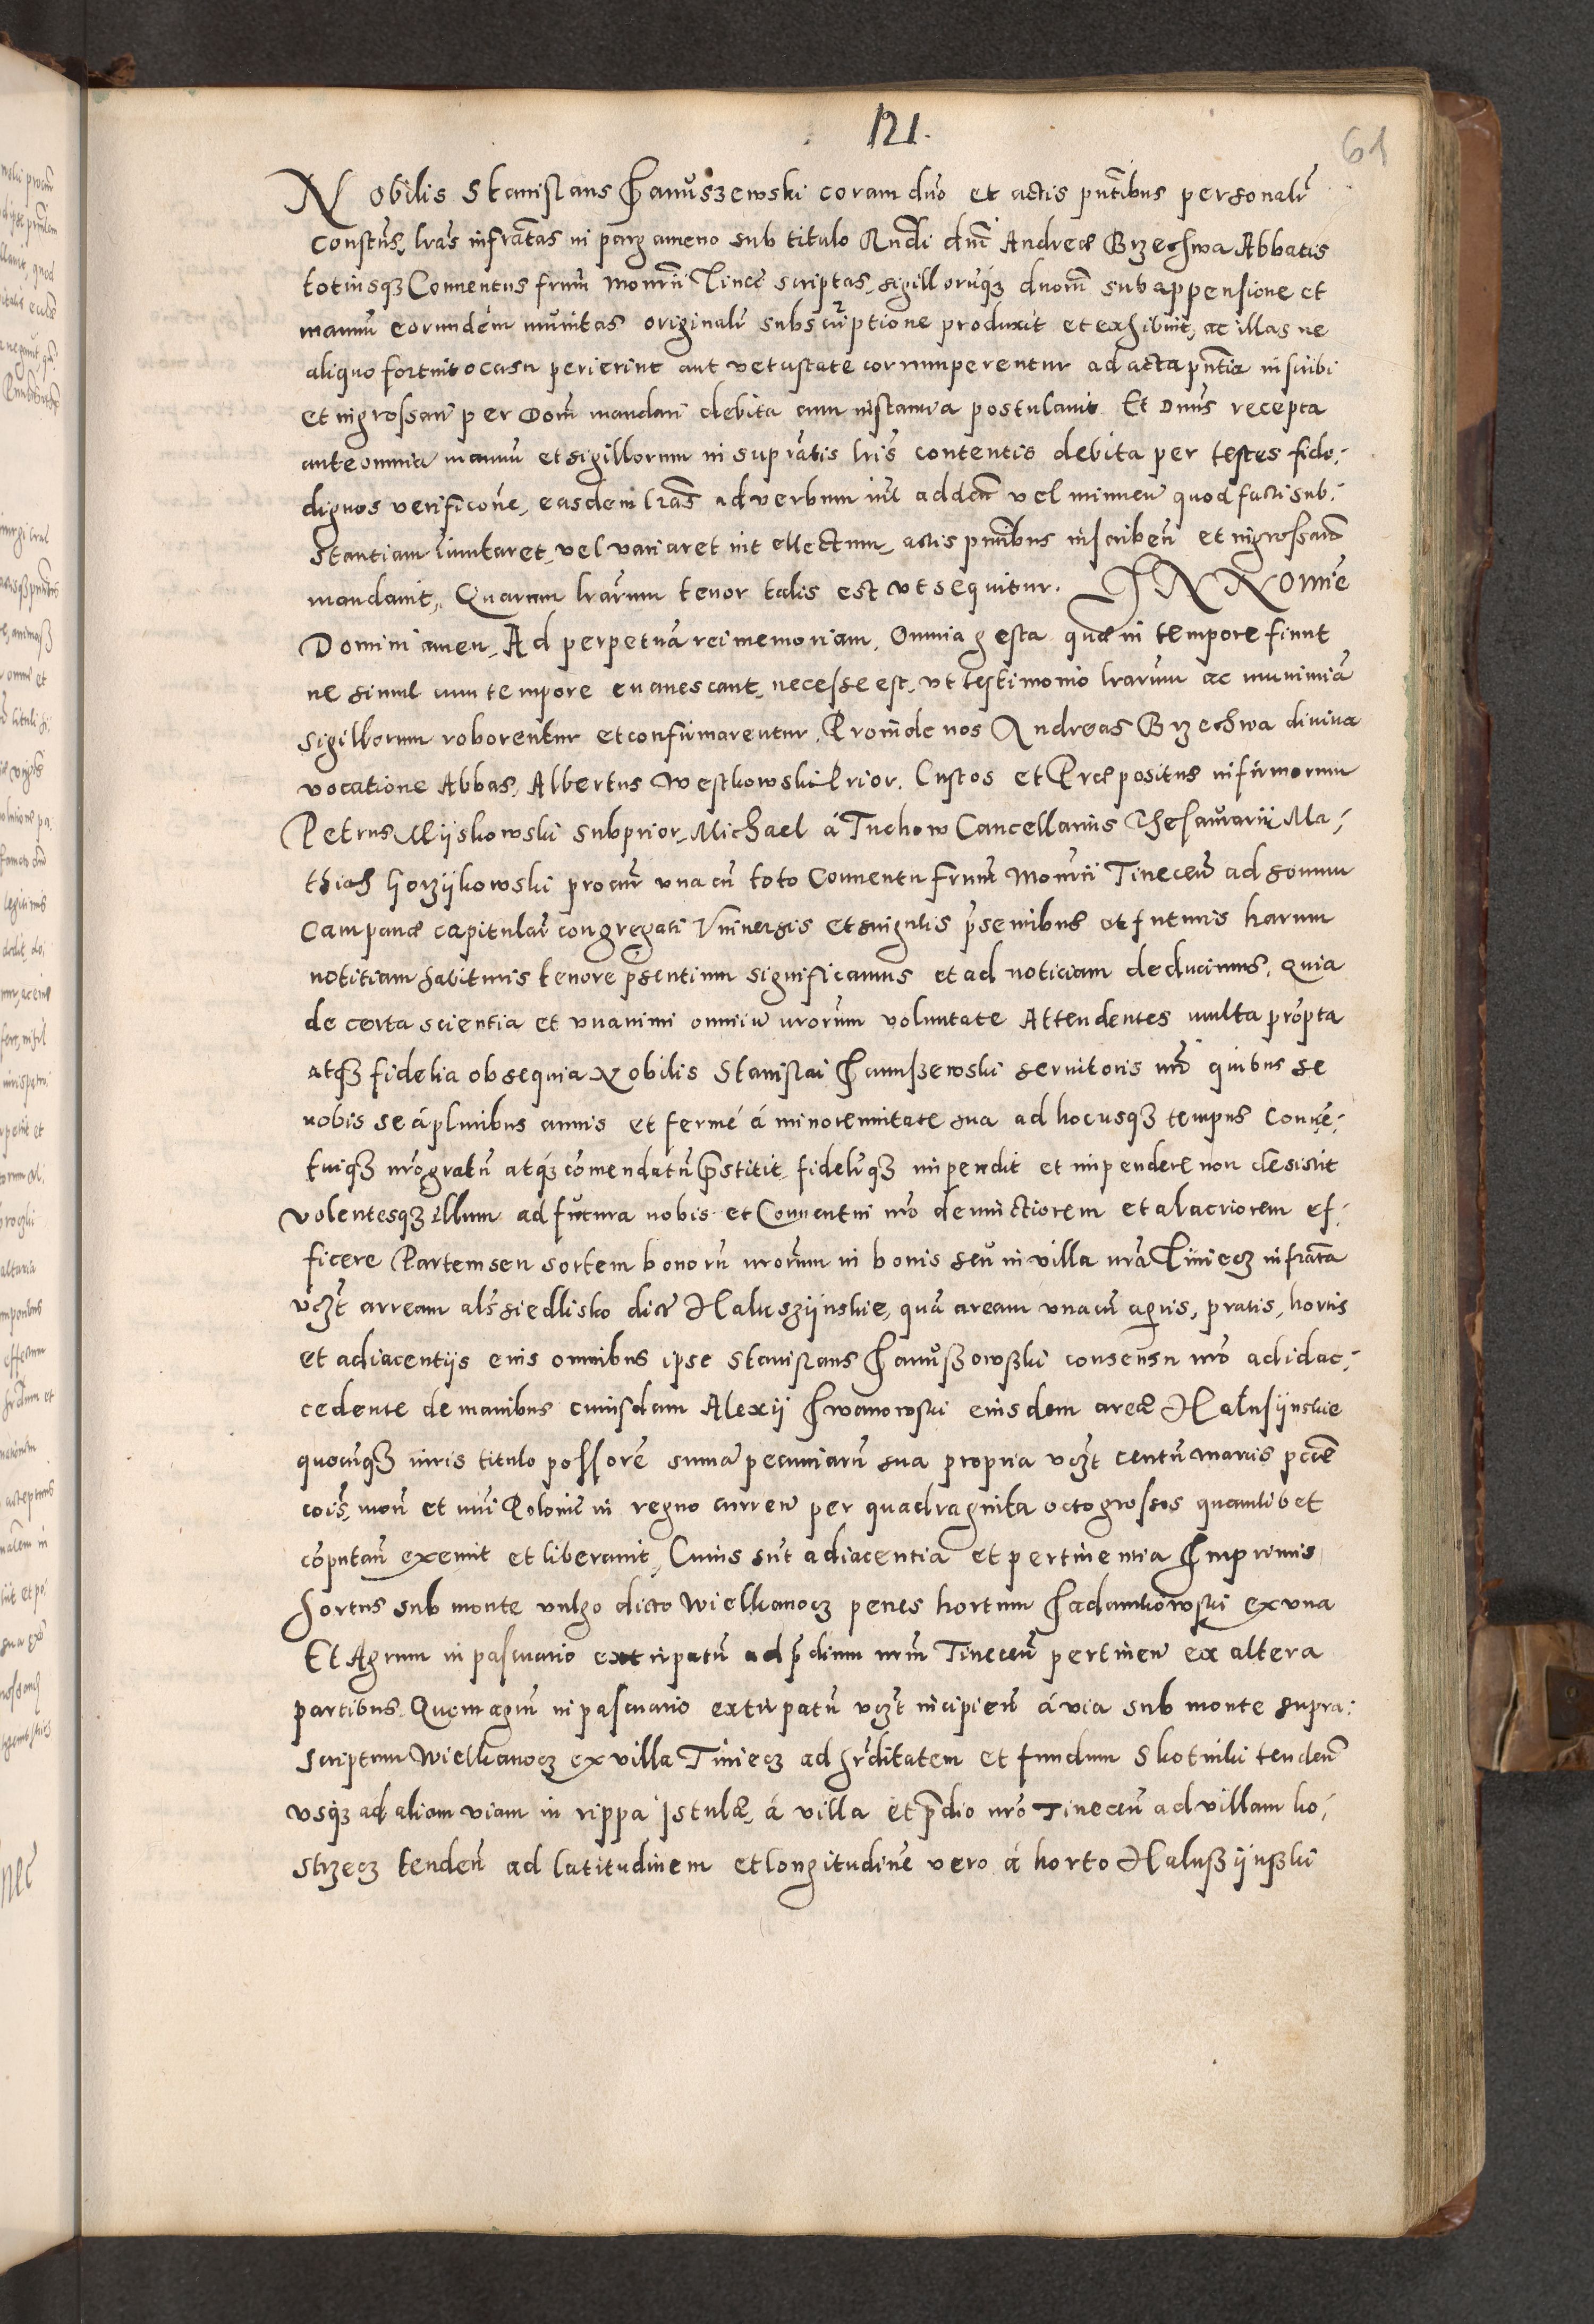 121.
61
Nobilis Stanislaus Januszewski coram dno et actis pntibus personalr
constus, lras infratas in pargameno sub titulo Rndi dni Andreæ Brzechwa Abbatis
totiusq3 Conuentus frum Monrii Tinec scriptas, sigilloruq3 duorum sub appensione et
manuu eorundem munitas originali subscriptione produxit et exhibuit, ac illas ne
aliquo fortuito casu perierint aut vetustate corrumperentur ad acta pntia inscribi
et ingrossari per Dom mandari debita cum instantia postulauit. Et Dnus recepta
ante omnia manuu et sigillorum in supratis lris contentis debita per testes fide-
dignos verificone, easdem lras ad verbum nil adden vel minuen quod facti sub-
stantiam immutaret, vel variaret intellectum, actis pntibus inscriben et ingrossand
mandauit. Quarum lrarum tenor talis est vt sequitur. IN Nomie
Domini amen. Ad perpetua rei memoriam. Omnia gesta quæ in tempore fiunt
ne simul cum tempore euanescant, necesse est, vt testimonio lrarum ac munimia
sigillorum roborentur et confirmarentur. Proinde nos Andreas Brzechwa diuina
vocatione Abbas, Albertus Westkowski Prior. Custos et Præpositus infirmorum
Petrus Myskowski subprior, Michael á Tuchow Cancellarius Thesaurarii Ma-
thias Gorzijkowski procur vna cu toto Conuentu frum Monrii Tinecen ad sonum
Campanæ capitular congregati Vniuersis et singulis psentibus et futuris harum
notitiam habituris tenore psentium significamus et ad noticiam deducimus, quia
de certa scientia et vnanimi omniu nrorum voluntate Attendentes multa prompta
atq3 fidelia obsequia Nobilis Stanislai Januszewski seruitoris nri quibus se
nobis se á pluribus annis et fermé á minorennitate sua ad hocusq3 tempus Conue-
tuiq3 nro gratu atq3 comendatu pstitit fidelrq3 impendit et impendere non desistit
volentesq3 illum ad futura nobis et Conuentui nro deuinctiorem et alacriorem ef-
ficere Partem seu sortem bonoru nrorum in bonis seu in villa nra Tiniecz infrata
vczt arream als siedlisko dict Haluszijnskie, qua aream vna cu agris, pratis, hortis
et adiacentijs eius omnibus ipse Stanislaus Januszowski consensu nro ad id ac-
cedente de manibus cuiusdam Alexij Iwanowski eiusdem areæ Halusijnskie
quocuq3 iuris titulo possore suma pecuniaru sua propria vczt centu marcis pccæ
cois, mon et nui Polonic in regno curren per quadraginta octo grossos quamlibet
computan exemit et liberauit, Cuius sut adiacentia et pertinentia Inprimis
hortus sub monte vulgo dicto Wielkanocz penes hortum Jadamkowski ex vna
Et Agrum in pascuario extirpatu ad pdium nrum Tinecen pertinen ex altera
partibus. Quem agru in pascuario extirpatu vczt incipien á via sub monte supra-
scriptum Wielkanocz ex villa Tiniecz ad hrditatem et fundum Skotniki tenden
vsq3 ad aliam viam in rippa Istulæ, á villa et pdio nro Tinecen ad villam ko-
strzecz tenden ad latitudinem et longitudine vero á horto Haluszijnski